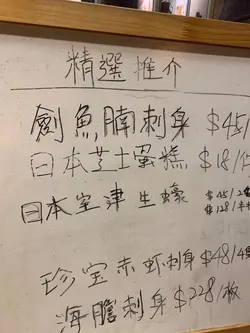 精選推介
劍魚腩刺身 $45/
日本芝士蛋糕 $18/
日本室津生蠔 $45/2隻
$128/半打
珍宝赤虾刺身 $48/4隻
海膽刺身 $228/板